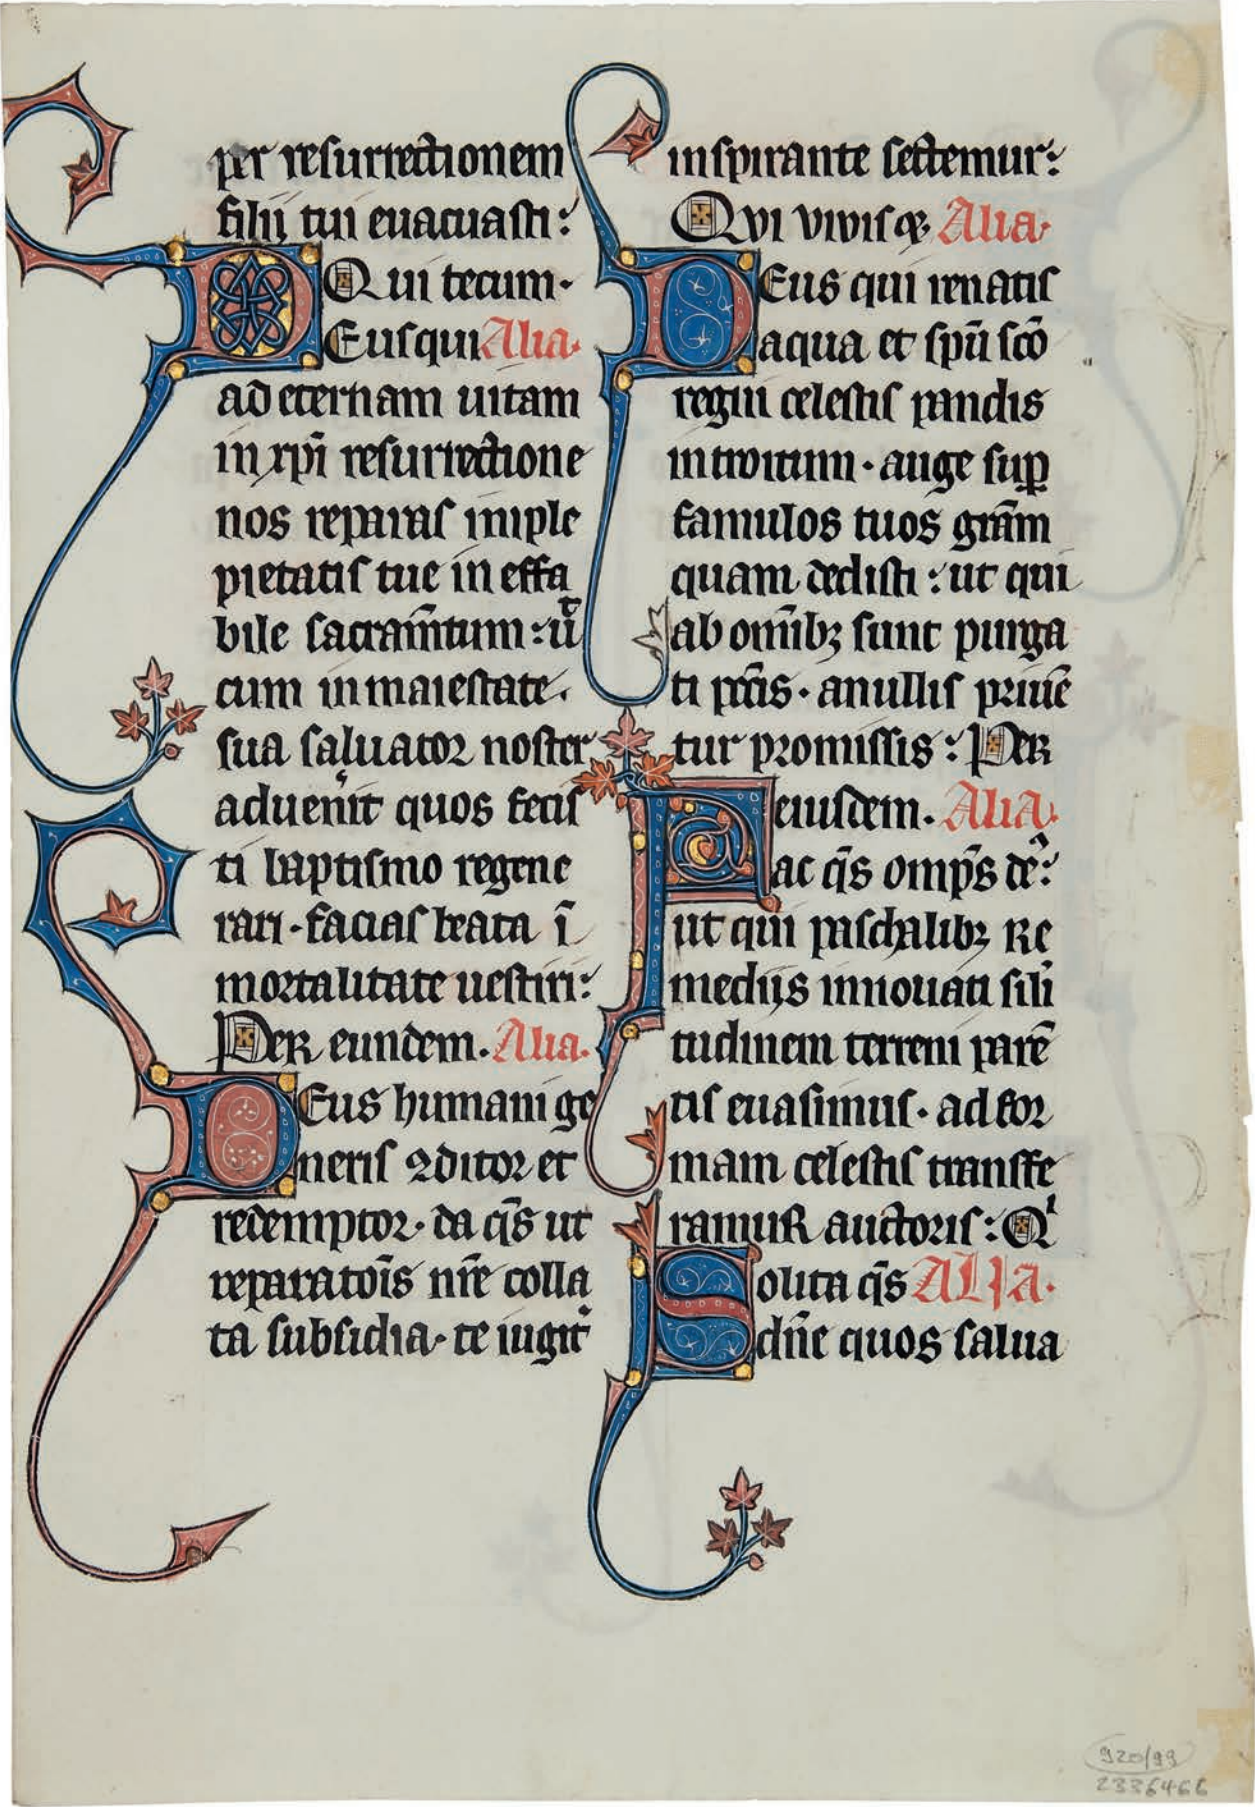 per resurrectionem
filij tui euacuasti:
Qui tecum.
DEus qui Alia.
ad eternam uitam
in xp̄i resurrectione
nos reparas imple
pietatis tue in effa
bile sacram̄tum: ut
cum in maiestate.
sua saluator noster
aduen̉it quos fecis
ti baptismo regene
rari. facias beata ī
mortalitate uestiri:
Per eundem. Alia.
DEus humani ge
neris ꝯditor et
redemptor. da q̄s ut
reparatoīs nr̄e colla
ta subsidia. te iugit̉
inspirante sectemur:
Qvi vivis qꝫ Alia.
DEus qui renatis
aqua et sp̄u sc̄o
regni celestis pandis
introitum. auge suꝑ
famulos tuos gr̄am
quam dedisti: ut qui
ab om̄ibꝫ sunt purga
ti pc̄c̄is. a nullis priuē
tur promissis: Per
eiusdem. Alia.
Fac q̄s omp̄s de᷒:
ut qui paschalibꝫ re
medijs innouati silỉ
tudinem terreni parē
tis euasimus. ad for
mam celestis transfe
ramur auctoris: Qⁱ
Solita q̄s ALIA.
dn̄e quos salua
920/99
2336466